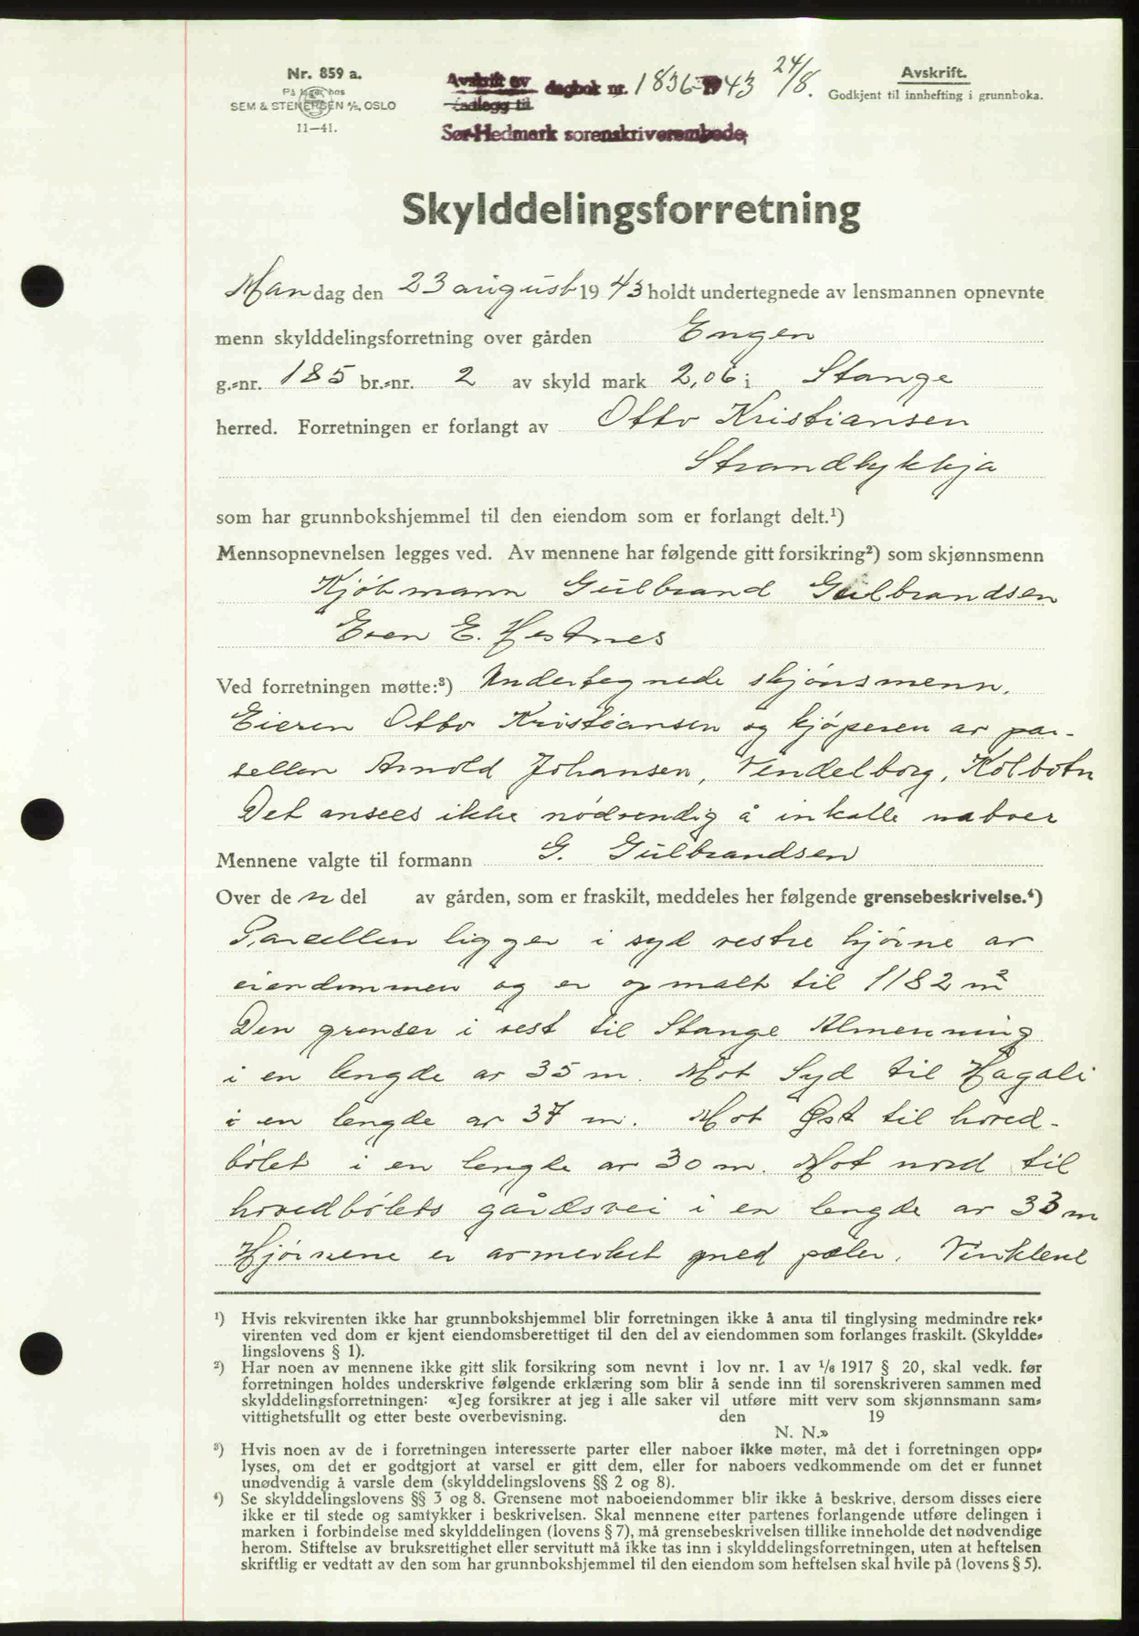 Nr. 859 a.
På lager hos
SEM & STENERSEN A/S, OSLO
11—41.
Avskrift av dagbok nr. 1836 1943 24/8.
vedlegg til
Sør-Hedmark sorenskriverembede,
Avskrift.
Godkjent til innhefting i grunnboka.
Skylddelingsforretning
Mandag den 23 august 1943 holdt undertegnede av lensmannen opnevnte
menn skylddelingsforretning over gården Engen
g.-nr. 185 br.-nr. 2 av skyld mark 2,06 i Stange
herred. Forretningen er forlangt av Otto Kristiansen
Strandlykkja
som har grunnbokshjemmel til den eiendom som er forlangt delt.¹)
Mennsopnevnelsen legges ved. Av mennene har følgende gitt forsikring²) som skjønnsmenn
Kjøbmann Gulbrand Gulbrandsen
Even E. Hestnes
Ved forretningen møtte:³) Undertegnede skjønsmenn.
Eieren Otto Kristiansen og kjøperen av par-
sellen Arnold Johansen, Vendelborg, Kolbotn
Det ansees ikke nødvendig å inkalle naboer
Mennene valgte til formann G. Gulbrandsen
Over de n del av gården, som er fraskilt, meddeles her følgende grensebeskrivelse.⁴)
Parcellen ligger i syd vestre hjørne av
eiendommen og er opmålt til 1182 m²
Den grenser i vest til Stange Almenning
i en lengde av 35 m. Mot Syd til Hågali
i en lengde av 37 m. Mot Øst til hoved-
bølet i en lengde av 30 m. Mot nord til
hovedbølets gårdsvei i en lengde av 33 m
Hjørnene er avmerket med pæler. Vinklene
¹) Hvis rekvirenten ikke har grunnbokshjemmel blir forretningen ikke å anta til tinglysing medmindre rek-
virenten ved dom er kjent eiendomsberettiget til den del av eiendommen som forlanges fraskilt. (Skyldde-
lingslovens § 1).
²) Har noen av mennene ikke gitt slik forsikring som nevnt i lov nr. 1 av 1/6 1917 § 20, skal vedk. før
forretningen holdes underskrive følgende erklæring som blir å sende inn til sorenskriveren sammen med
skylddelingsforretningen: «Jeg forsikrer at jeg i alle saker vil utføre mitt verv som skjønnsmann sam-
vittighetsfullt og etter beste overbevisning. den 19
N. N.»
³) Hvis noen av de i forretningen interesserte parter eller naboer ikke møter, må det i forretningen opp-
lyses, om det er godtgjort at varsel er gitt dem, eller for naboers vedkommende om det er funnet
unødvendig å varsle dem (skylddelingslovens §§ 2 og 8).
⁴) Se skylddelingslovens §§ 3 og 8. Grensene mot naboeiendommer blir ikke å beskrive, dersom disses eiere
ikke er til stede og samtykker i beskrivelsen. Skal mennene etter partenes forlangende utføre delingen i
marken i forbindelse med skylddelingen (lovens § 7), må grensebeskrivelsen tillike inneholde det nødvendige
herom. Stiftelse av bruksrettighet eller servitutt må ikke tas inn i skylddelingsforretningen, uten at heftelsen
skriftlig er vedtatt av den som har grunnbokshjemmel til den eiendom som heftelsen skal hvile på (lovens § 5).